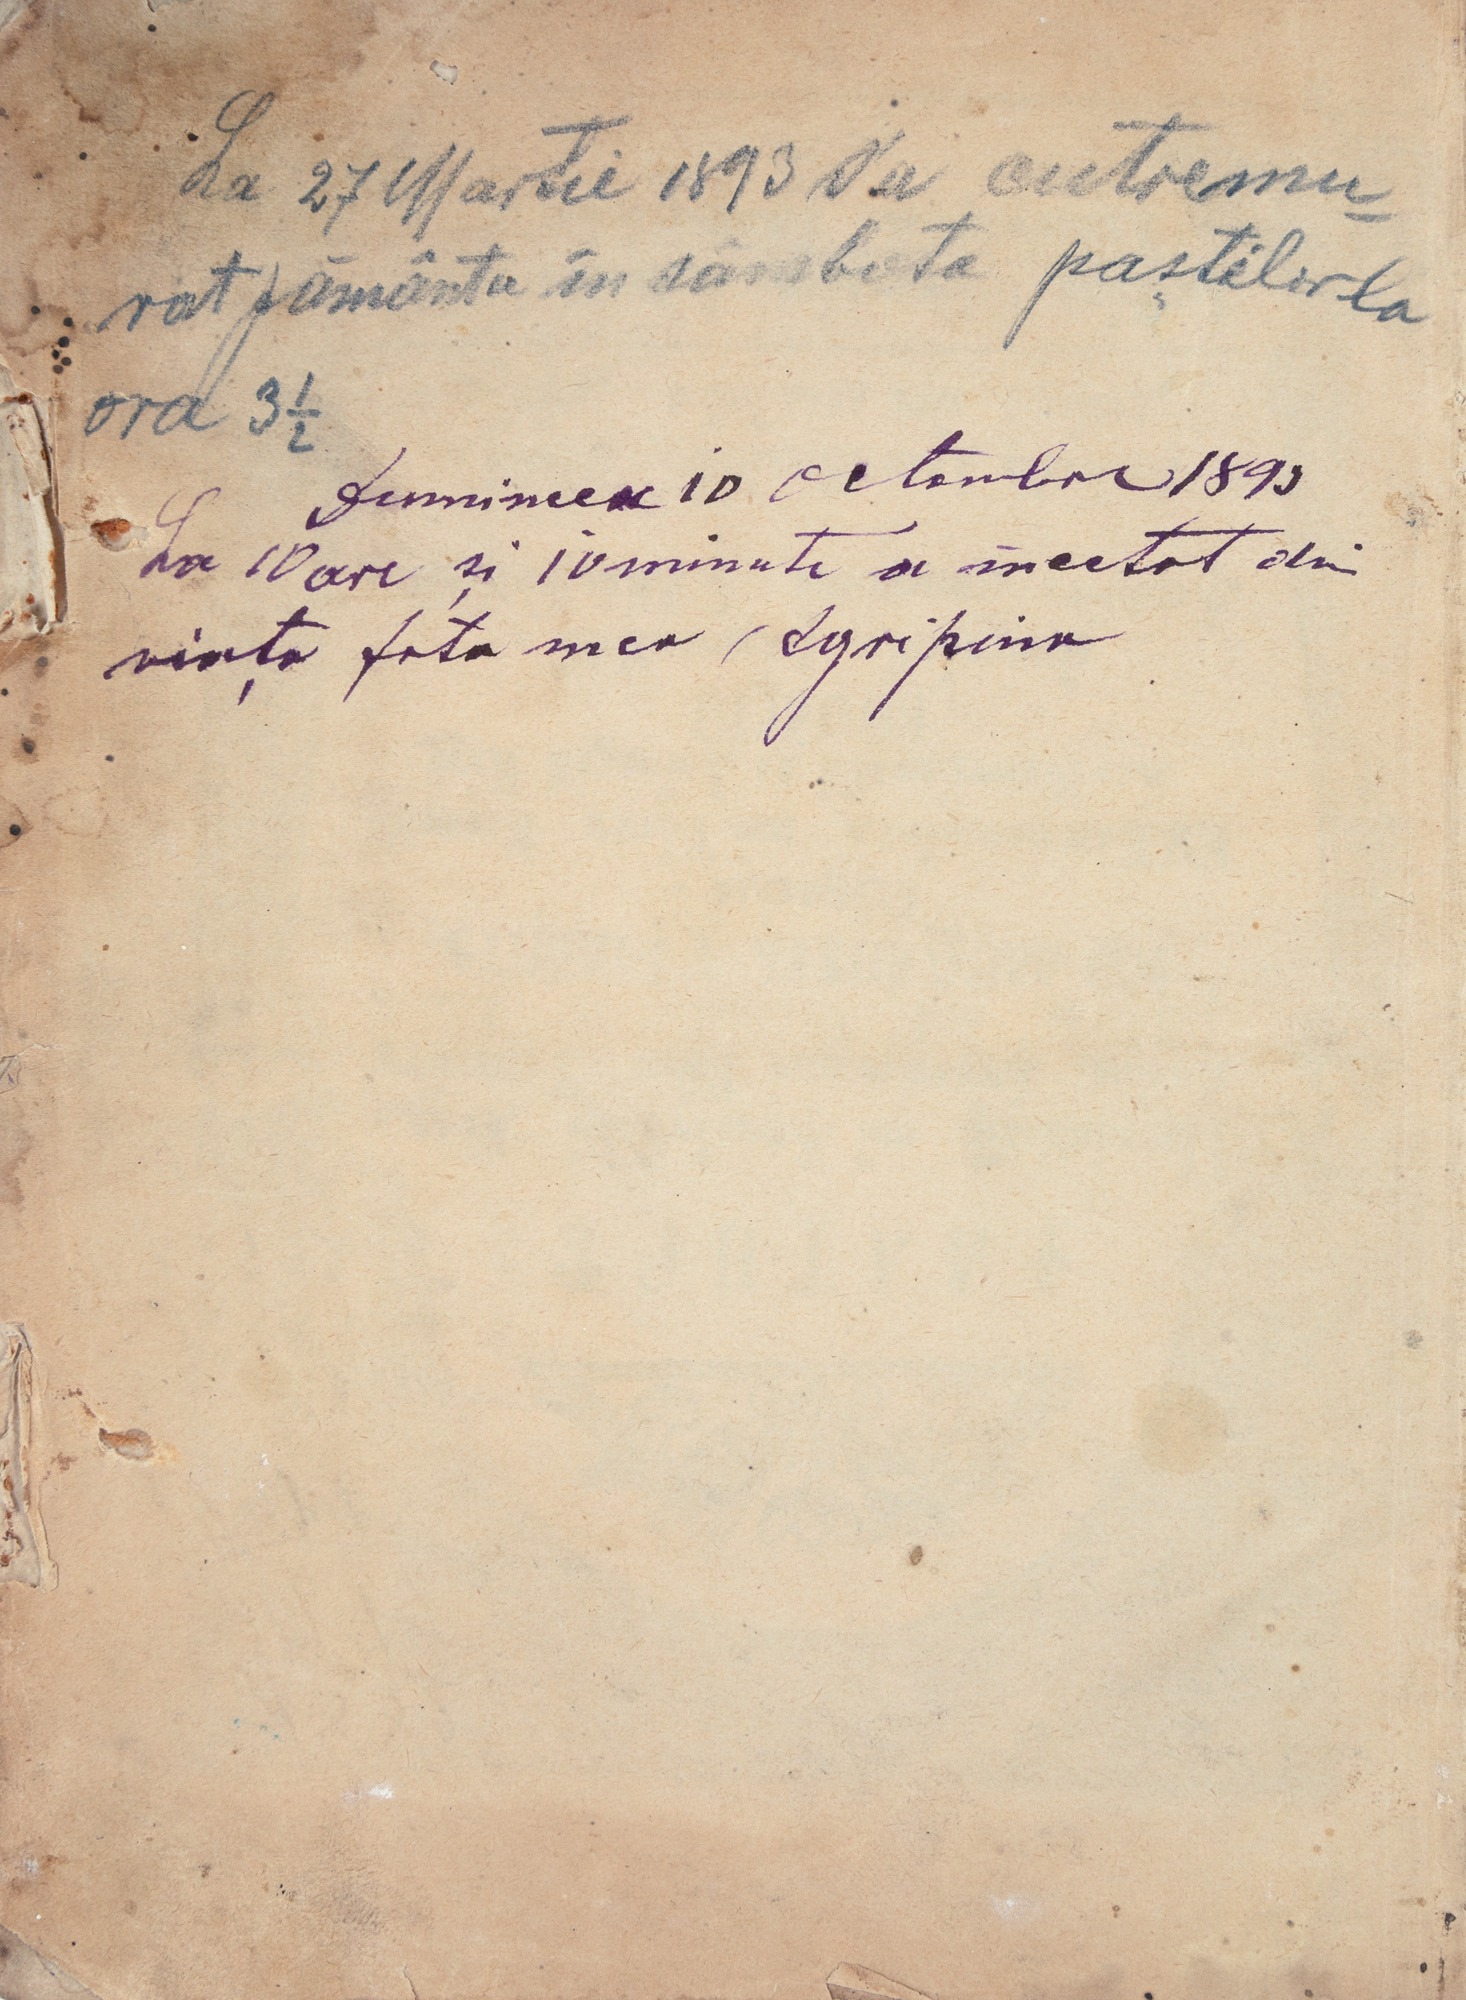 La 27 Martie 1893 S'a cutremu=
rat pămîntu în sâmbăta paştelor la
ora 3 1/2
Duminecă 10 Octombre 1893
La 10 ore şi 10 minute a încetat din
viaţa fata mea Agripina